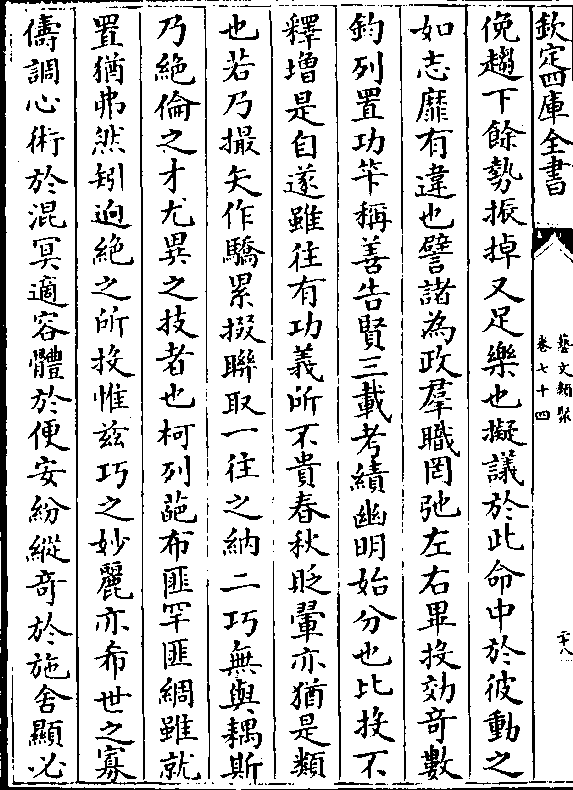 欽定四庫全書
藝文類聚
卷七十四
二十八
俛趨下餘勢振掉又足樂也擬議於此命中於彼動之
如志靡有違也譬諸為政羣職罔弛左右畢投効竒數
鈞列置功筭稱善告賢三載考績幽明始分也比投不
釋増是自遂雖往有功義所不貴春秋貶翬亦猶是類
也若乃撮矢作驕累掇聯取一往之納二巧無與耦斯
乃絶倫之才尤異之技者也柯列葩布匪罕匪綢雖就
置猶弗然矧逈絶之所投惟兹巧之妙麗亦希世之寡
儔調心術於混冥適容體於便安紛縱竒於施舍顯必